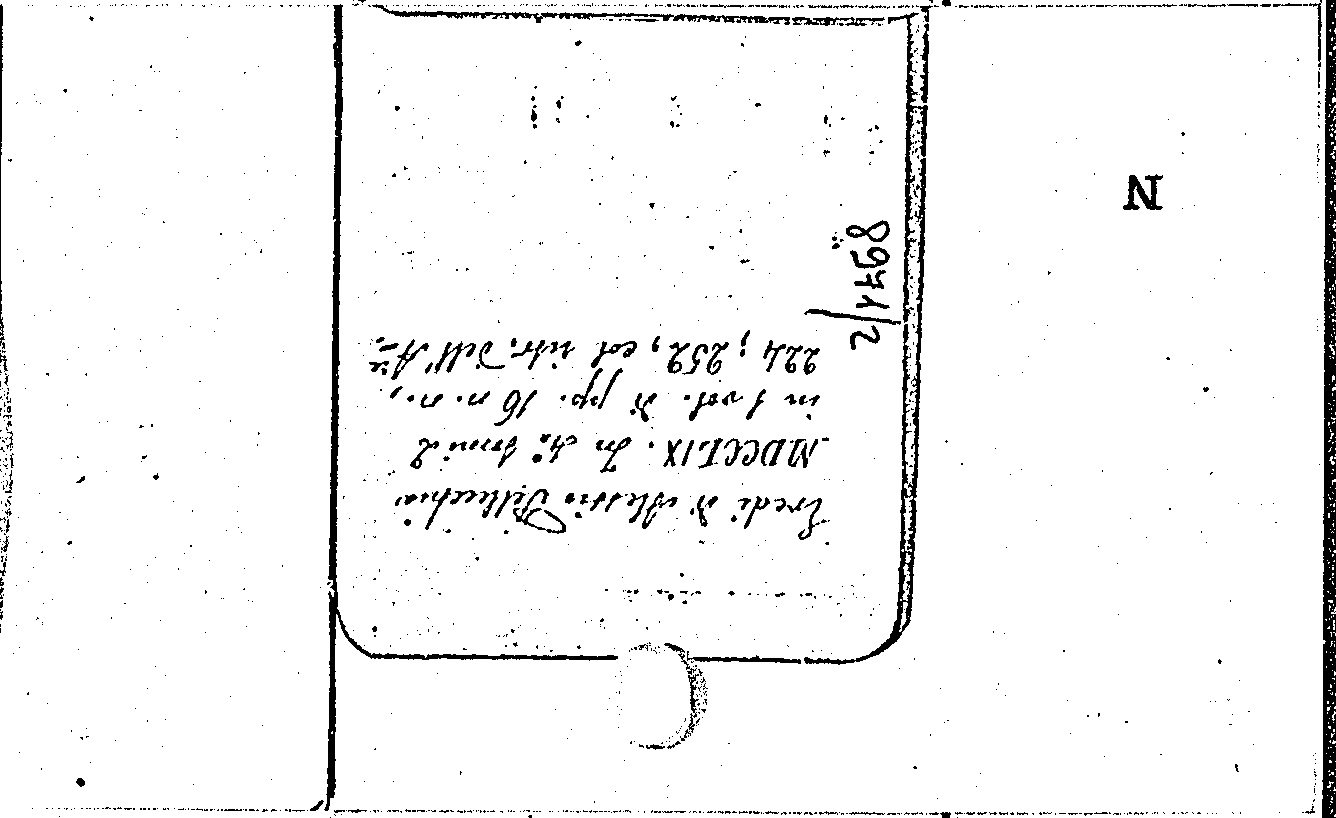 Eredi di Alessio Pellecchia
MDCCLIX. In 4.° tomi 2
in 1 vol. di pp. 16 n. n.,
224; 252, col ritr. dell' A.
8971/2
N